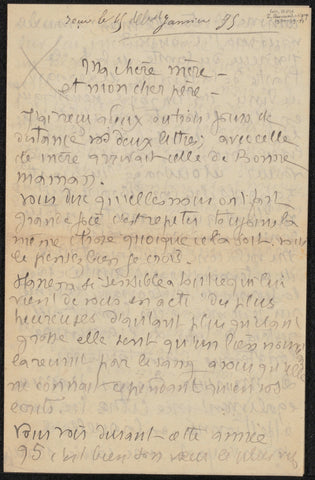 reçu le 15 Janvier 95
Ma chère mère –
et mon cher père –
J'ai reçu à deux ou trois jours de
distance vos deux lettres; avec celle
de mère arrivait celle de Bonne
maman.
vous dire qu'elles nous ont fait
grande joie c'est répéter toujours la
même chose quoique cela soit. vous
le pensez bien je crois.
si sensible à tout ce qui lui
vient de vous en a été des plus
heureuses d'autant plus qu'étant
elle sent qu'un lien nous
par le sang à vous qu'elle
ne connait cependant qu'en vos
écrits.
vous voir durant cette année
95 c'est bien son vœu le plus